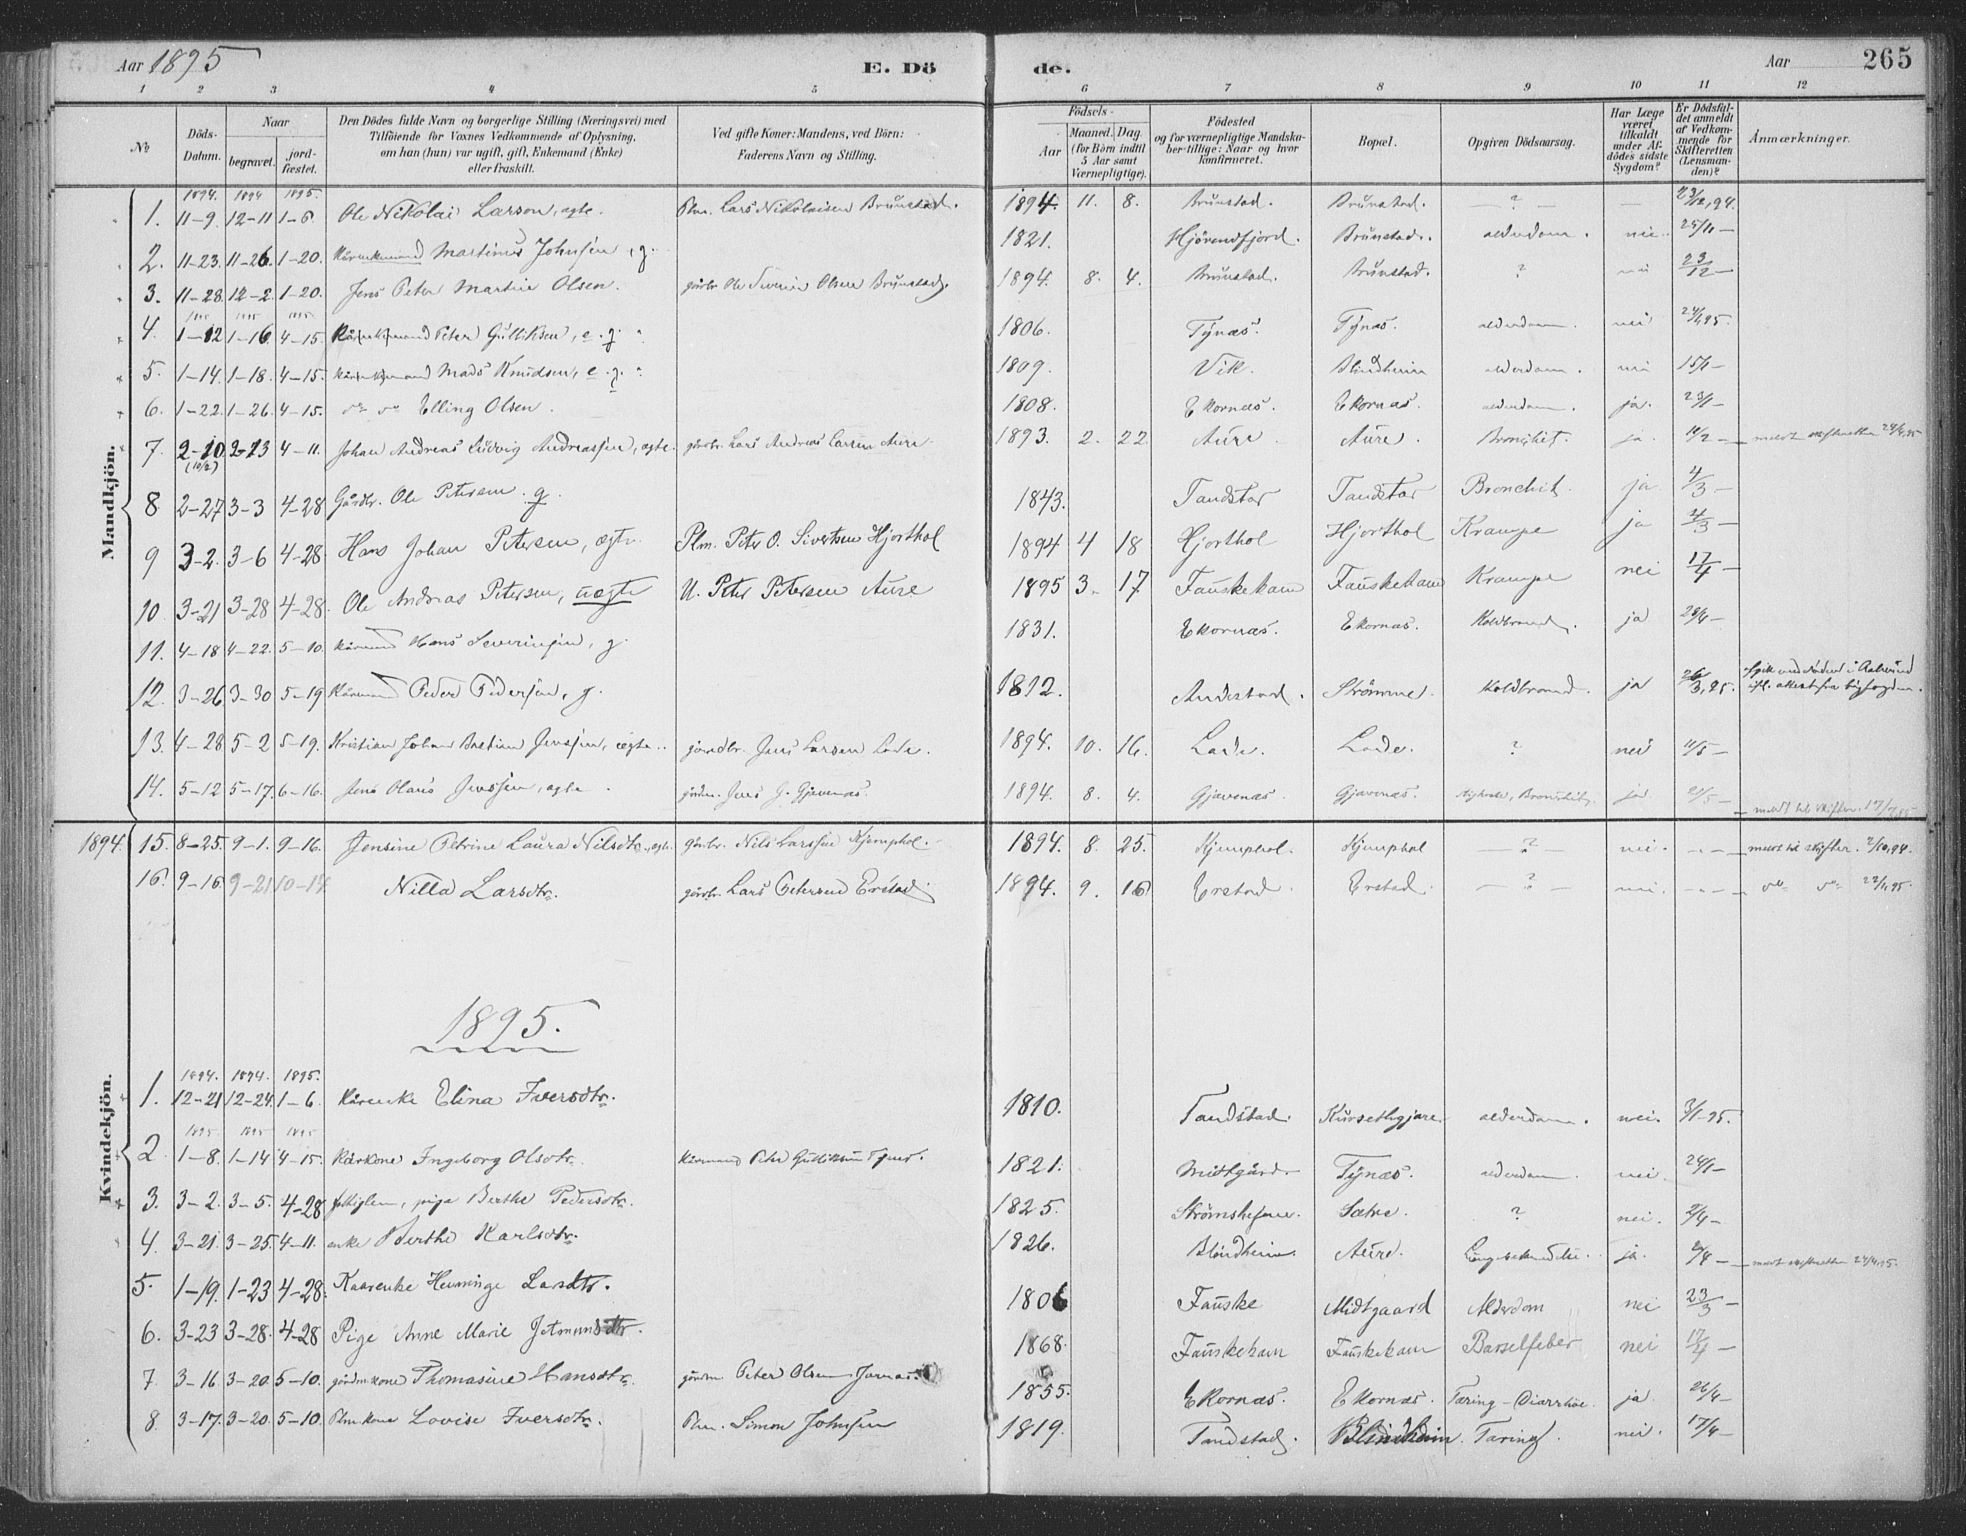 Aar 1895 E. Dö de. Aar 265
1 2 3 4 5 6 7 8 9 10 11 12
No Döds-Datum. Naar begravet. jord-fæstet. Den Dödes fulde Navn og borgerlige Stilling (Næringsvei) med Tilföiende for Voxnes Vedkommende af Oplysning, om han (hun) var ugift, gift, Enkemand (Enke) eller fraskilt. Ved gifte Koner: Mandens, ved Börn: Faderens Navn og Stilling. Födsels- Aar Maaned. Dag (for Börn indtil 5 Aar samt Værnepligtige). Födested og for værnepligtige Mandskaber tillige: Naar og hvor konfirmeret. Bopæl. Opgiven Dödsaarsag. Har Læge været tilkaldt under Afdödes sidste Sygdom? Er Dödsfaldet anmeldt af Vedkommende for Skifteretten (Lensmanden)? Anmærkninger.
Mandkjön.
1894. 1894 1895.
1. 11-9. 12-11 1-6. Ole Nikolai Larson, ægte. Plm. Lars Nikolaisen Brunstad. 1894. 11. 8. Brunstad. Brunstad. — ? — —
2. 11-23. 11-26. 1-20. Martinus Johnsen, g. 1821. Hjörendfjord. Brunstad. alderdom. nei. 25/11 —
3. 11-28. 12-2. 1-20. Jens Peter Martin Olsen. gårdbr. Ole Severin Olsen Brunstad. 1894. 8. 4. Brunstad. Brunstad. ? nei 23/12 —
1895 1895 1895.
4. 1-12 1-16. 4-15. Peter Gulliksen, e. g. 1806. Tynæs. Tynæs. alderdom. nei
5. 1-14. 1-18. 4-15. Mads Knudsen, e. g. 1809. Vik. Blindheim alderdom. nei 15/1 —
6. 1-22. 1-26. 4-15. do do Elling Olsen. 1808. Ekornæs. Ekornæs. alderdom. ja. 23/1 —
7. 2-10 (10/2) 2-13 4-11. Johan Andreas Ludvig Andreassen, ægte. gårdbr. Lars Andreas Larsen Aure. 1893. 2. 22. Aure. Aure. Bronchit. ja. 14/2 — meldt skifteretten 24/4,95
8. 2-27 3-3 4-28 Gårdbr. Ole Petersen. g. 1843. Tandstad Tandstad Bronchit. ja 4/3 —
9 3-2. 3-6 4-28 Hans Johan Petersen, ægte. Plm. Peter O. Sivertsen Hjorthol 1894 4 18 Hjorthol Hjorthol Krampe ja 4/3 —
10. 3-21 3-28 4-28. Ole Andreas Petersen, uægte U. Peter Petersen Aure 1895 3. 17 Fauskekam Fauskekam Krampe nei 17/4 —
11. 4-18 4-22. 5-10. Kårmand Hans Severinsen, g. 1831. Ekornæs. Ekornæs. Koldbrand. ja
12. 3-26 3-30 5-19 Kårmand Peder Pedersen, g. 1812. Andestad. Strömme. Koldbrand. ja 26/3,95.
13. 4-28 5-2 5-19. Kristian Johan Bastian Jenssen, ægte. gårdbr. Jens Larsen Lade. 1894. 10. 16. Lade. Lade. ? nei 11/5 —
14. 5-12 5-17. 6-16. Jens Olaus Jenssen, ægte. gårdm. Jens J. Gjævenæs. 1894. 8. 4. Gjævenæs. Gjævenæs. ja
1894. 15. 8-25. 9-1. 9-16. Jensine Petrine Laura Nilsdtr., ægte. gårdbr. Nils Larssen Kjemphol. 1894. 8. 25. Kjemphol. Kjemphol — ? — nei. — meldt til skifter. 2/10,94.
16. 9-16. 9-21 10-14. Nilla Larsdtr. gårdbr. Lars Petersen Erstad. 1894. 9. 16 Erstad. Erstad. — ? — nei. — do do
1895.
Kvindekjön.
1894. 1894. 1895.
1. 12-21 12-24. 1-6. Kårenke Elina Iversdtr. 1810. Tandstad. alderdom. nei. 3/1-95.
1895 1895 1895
2 1-8. 1-14 4-15. Kårkone Ingeborg Olsdtr. Kårmand Peter Gulliksen Tynes. 1821. Midtgård Tynæs. alderdom. nei. 24/1 —
3. 3-2. 3-5. 4-28 pige Berthe Pedersdtr. 1825. Sætre. ? nei. 2/4 —
4. 3-21. 3-25. 4-11. enke Berthe Karlsdtr. 1826. Blindheim. Aure. ja.
5. 1-19. 1-23 4-28. Kaarenke Hemminge Larsdtr. 1806 Fauske Midtgaard Alderdom nei 23/3 —
6. 3-23 3-28. 4-28 Pige Anne Marie Jetmundsdtr. 1868. Fauskekam Fauskekam Barselfeber nei 17/4 —
7. 3-16. 3-20 5-10. gårdmkone Thomasine Hansdtr. gårdm. Peter Olsen 1855. Ekornæs. Ekornæs. Tæring - Diarrhöe. ja 26/4 —
8. 3-17. 3-20. 5-10. Plm kone Lovise Iversdtr. Plm. Simon Johnsen 1819. Tandstad. Blindheim. Tæring. nei. 17/4 —